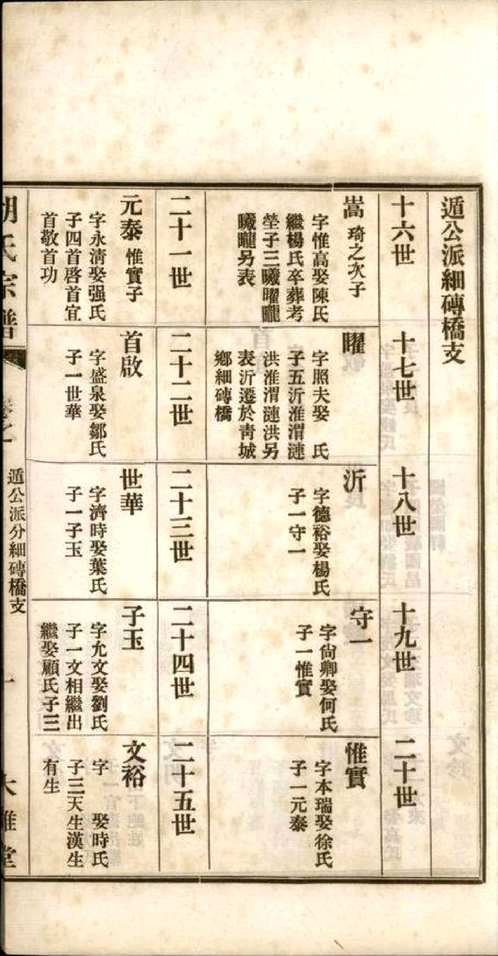 遁公派細磚橋支
十六世
十七世
十八世
十九世
二十世
嵩 琦之次子
字惟高娶陳氏
繼楊氏卒葬考
塋子三曦曜曨
曦曨另表
曜
字照夫娶 氏
子五沂淮渭漣
洪淮渭漣洪另
表沂遷於青城
鄉細磚橋
沂
字德裕娶楊氏
子一守一
守一
字尙卿娶何氏
子一惟實
惟實
字本瑞娶徐氏
子一元泰
二十一世
二十二世
二十三世
二十四世
二十五世
元泰 惟實子
字永清娶强氏
子四首啓首宜
首敬首功
首啟
字盛泉娶鄒氏
子一世華
世華
字濟時娶葉氏
子一子玉
子玉
字允文娶劉氏
子一文相繼出
繼娶顧氏子三
文裕
字 娶時氏
子三天生漢生
有生
胡氏宗譜
卷之
遁公派分細磚橋支
大雅堂